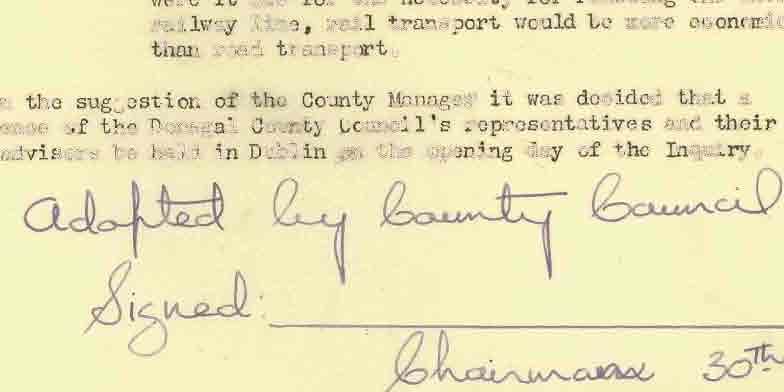 were it for the necessity for
railway line, rail transport would be more economic
than road transport.
the suggestion of the County Manager it was decided that a
ence of the Donegal County Council's representatives and their
advisors be held in Dublin on the opening day of the Inquiry.
Adopted by County Council
Signed:
Chairman 30th